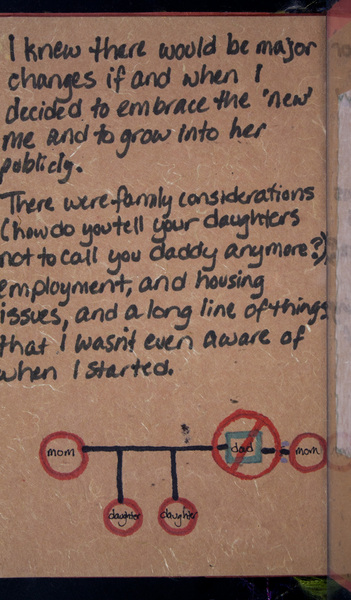 I knew there would be major
changes if and when I
decided to embrace the 'new'
me and to grow into her
publicly.
There were family considerations
(how do you tell your daughters
not to call you daddy anymore?),
employment, and housing
issues, and a long line of things
that I wasn't even aware of
when I started.
mom
dad
mom
daughter
daughter